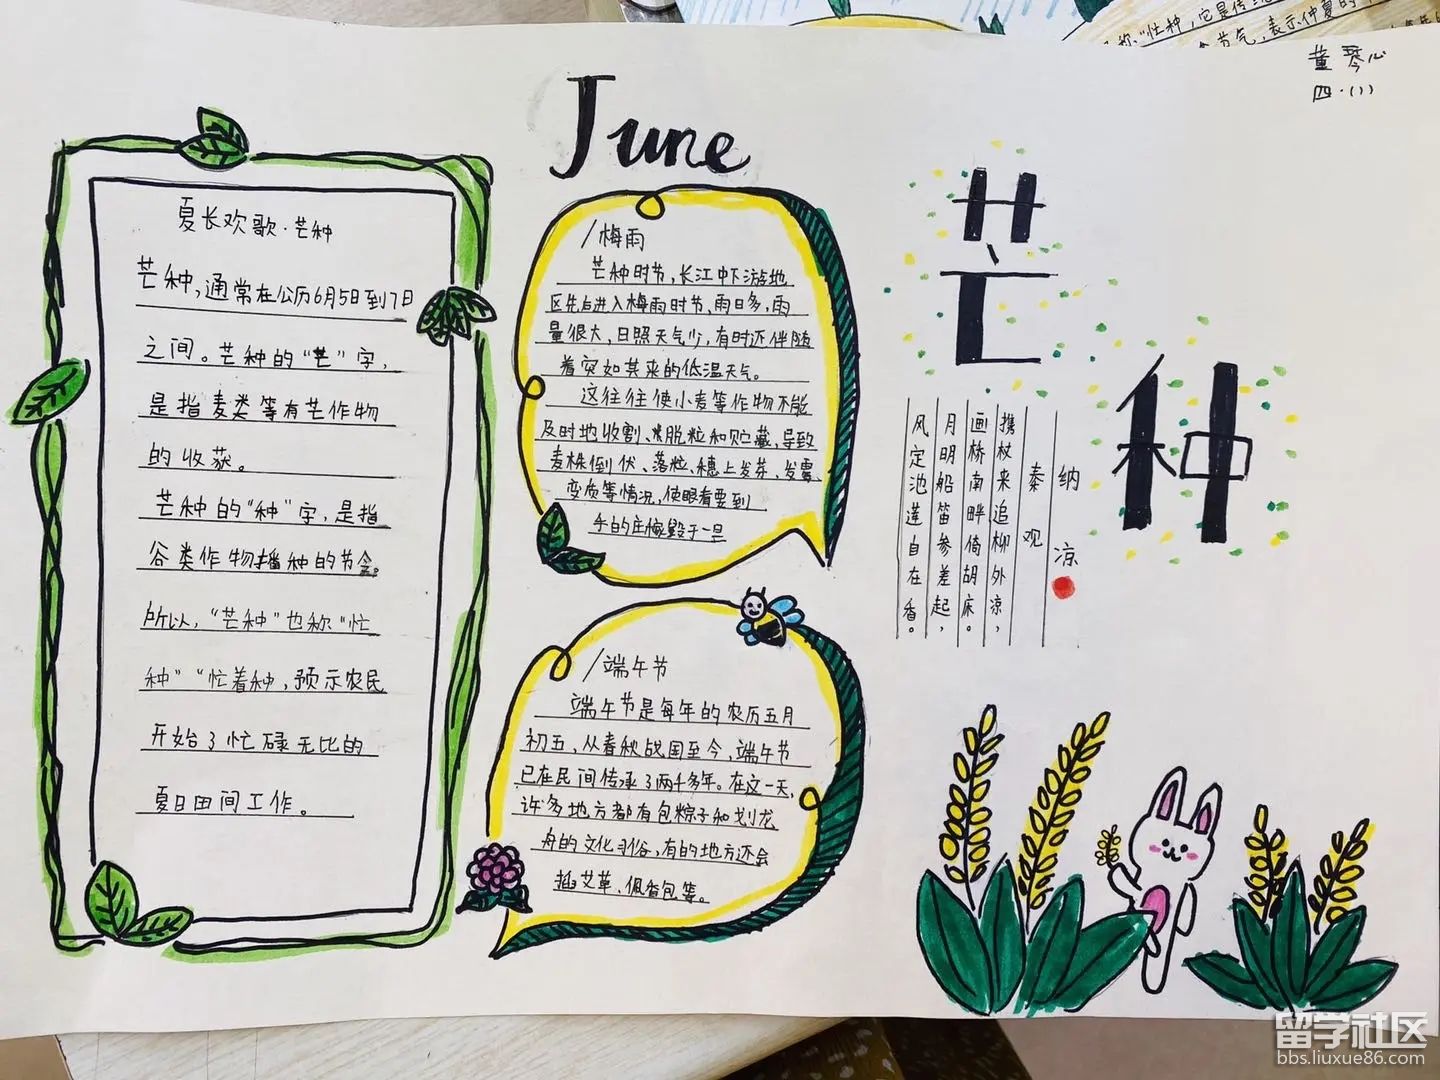 称"忙种,它是传
节气,表示仲夏的
董琴心
四·(1)
June
夏长欢歌·芒种
芒种,通常在公历6月5日到7日
之间。芒种的"芒"字,
是指麦类等有芒作物
的收获。
芒种的"种"字,是指
谷类作物播种的节
所以,"芒种"也称"忙
种""忙着种,预示农民
开始了忙碌无比的
夏日田间工作。
/梅雨
芒种时节,长江中下游地
区先后进入梅雨时节、雨日多,雨
量很大,日照天气少,有时还伴随
着突如其来的低温天气。
这往往使小麦等作物不能
及时地收割、脱粒和贮藏,导致
麦株倒伏、落粒、穗上发芽、发霉、
变质等情况,使眼看要到
手的庄稼毁于一旦
/端午节
端午节是每年的农历五月
初五,从春秋战国至今,端午节
已在民间传承了两千多年。在这一天,
许多地方都有包粽子和划龙
舟的文化习俗,有的地方还会
插艾草、佩香包等。
芒种
纳凉
秦观
携杖来追柳外凉,
画桥南畔倚胡床。
月明船笛参差起,
风定池莲自在香。
留学社区
bbs.liuxue86.com